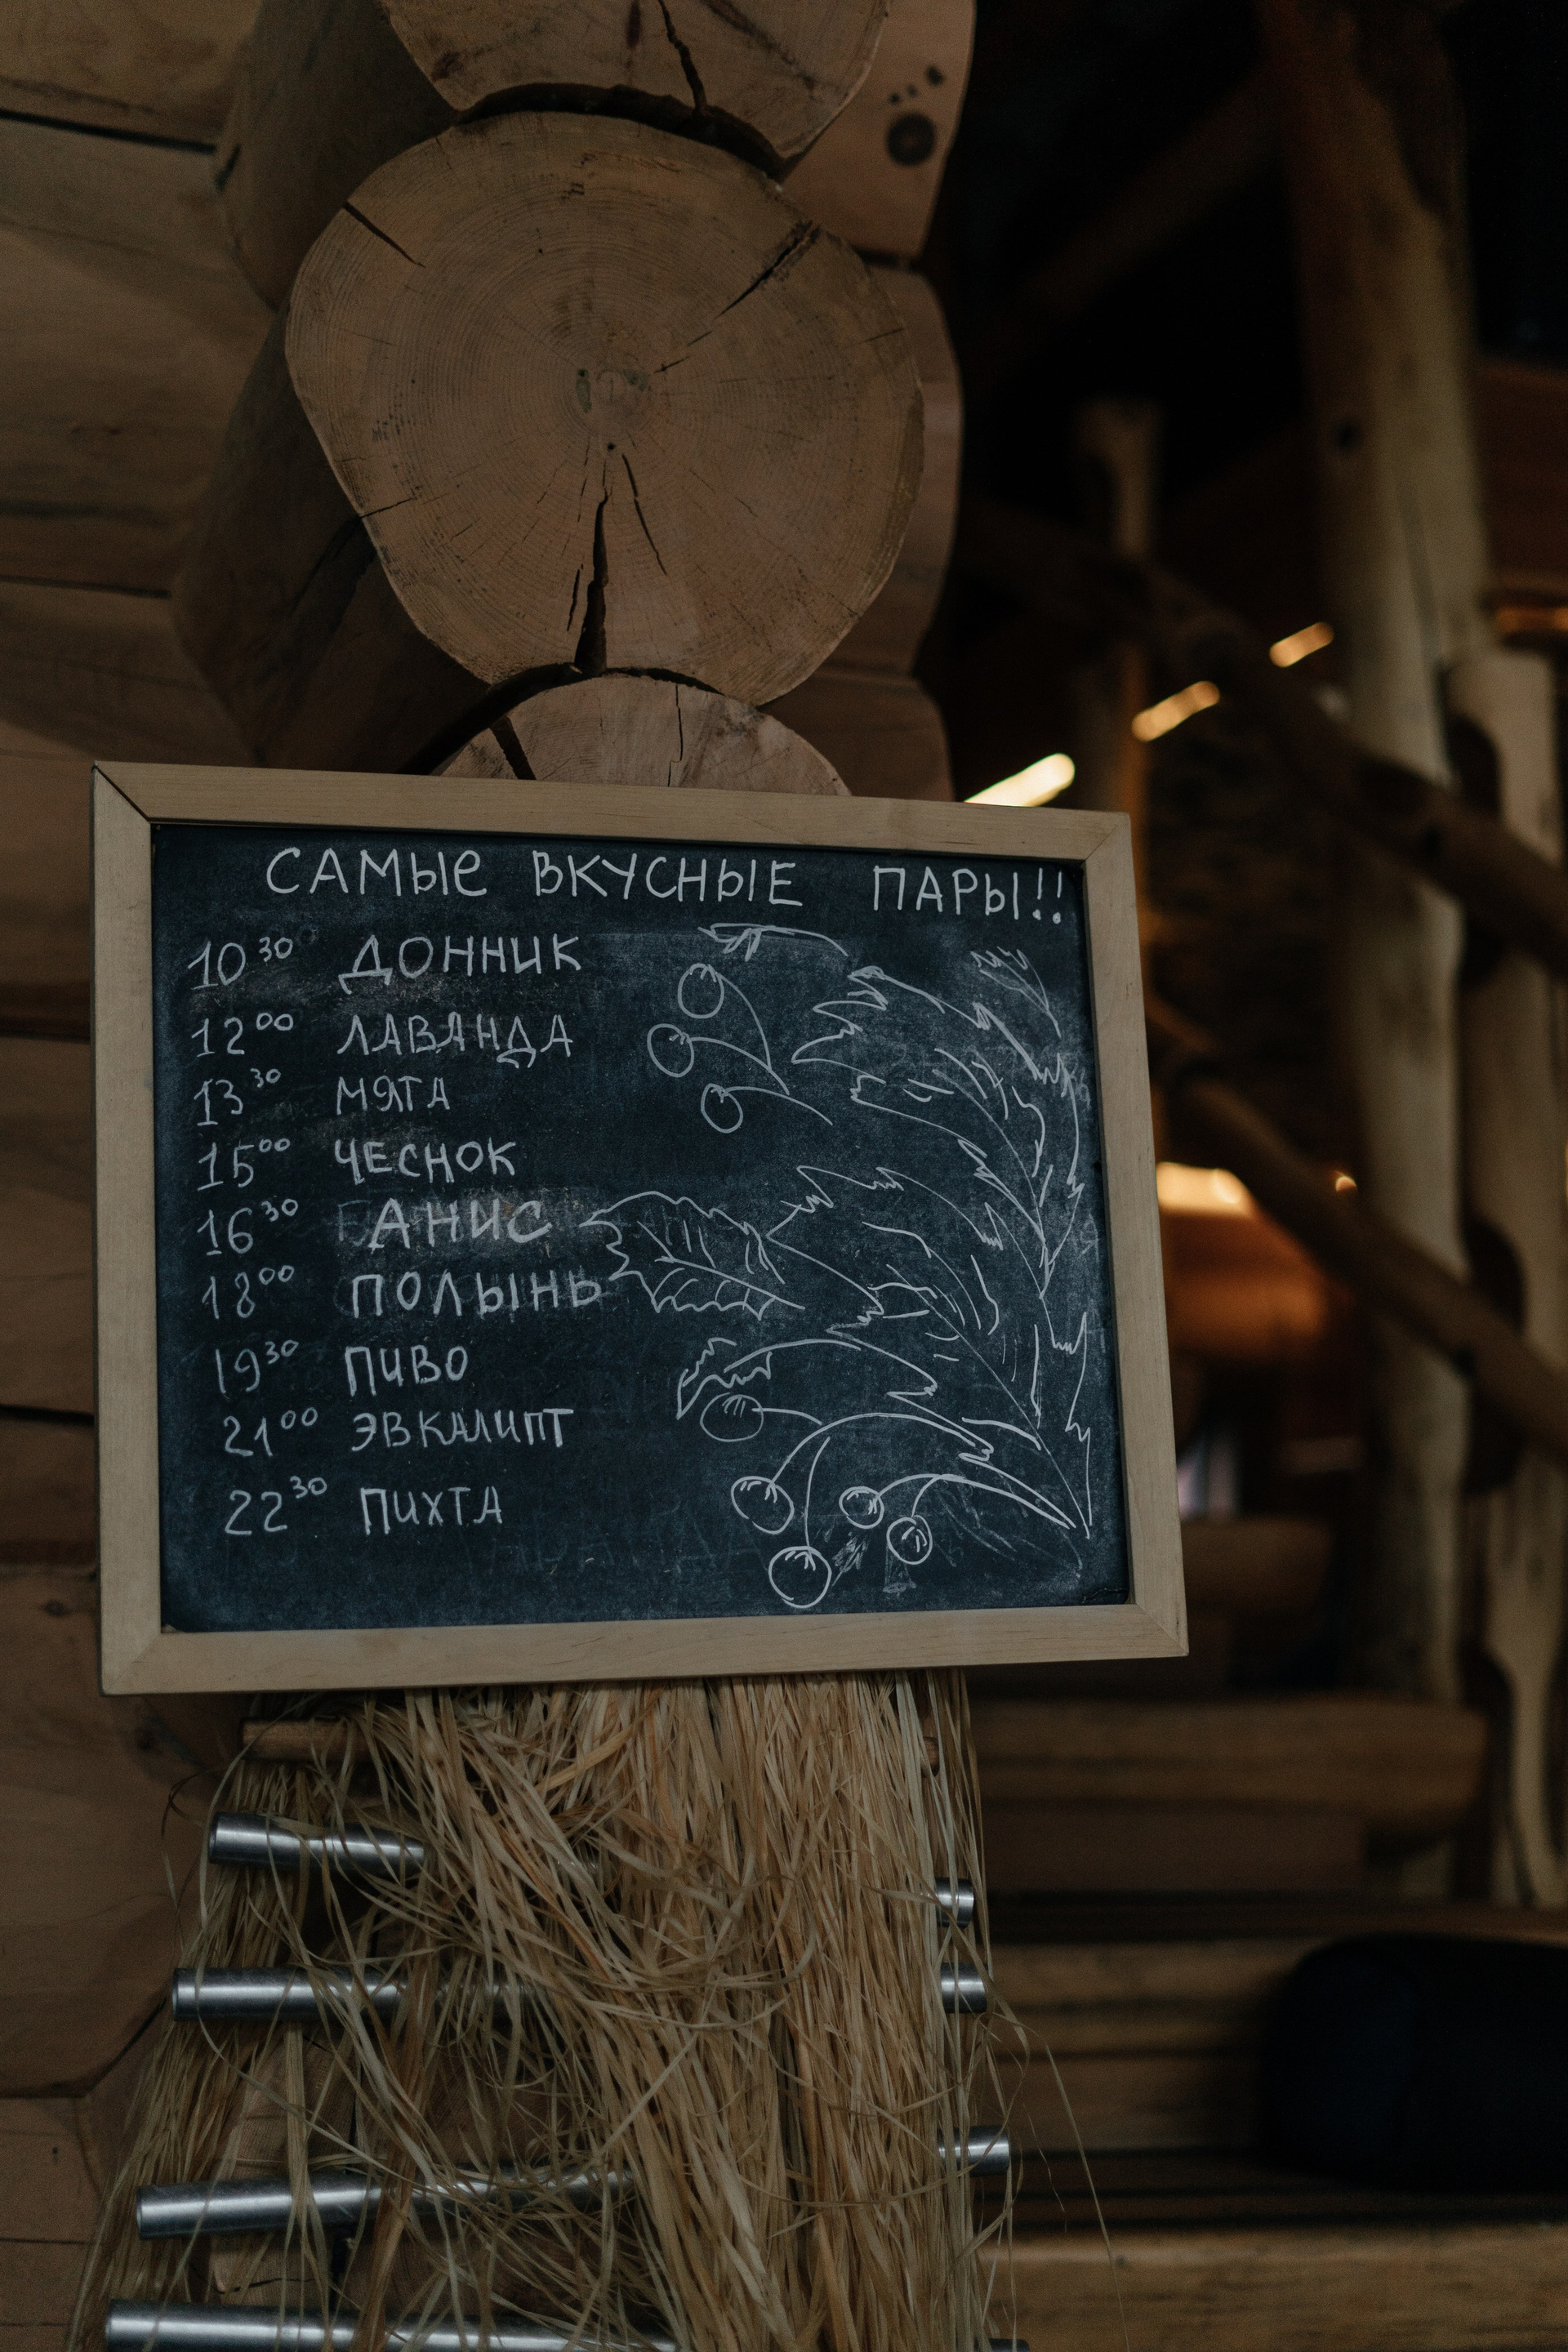 САМЫЕ ВКУСНЫЕ ПАРЫ!!
10 30 ДОННИК
12 00 ЛАВАНДА
13 30 МЯТА
15 00 ЧЕСНОК
16 30 АНИС
18 00 ПОЛЫНЬ
19 30 ПИВО
21 00 ЭВКАЛИПТ
22 30 ПИХТА